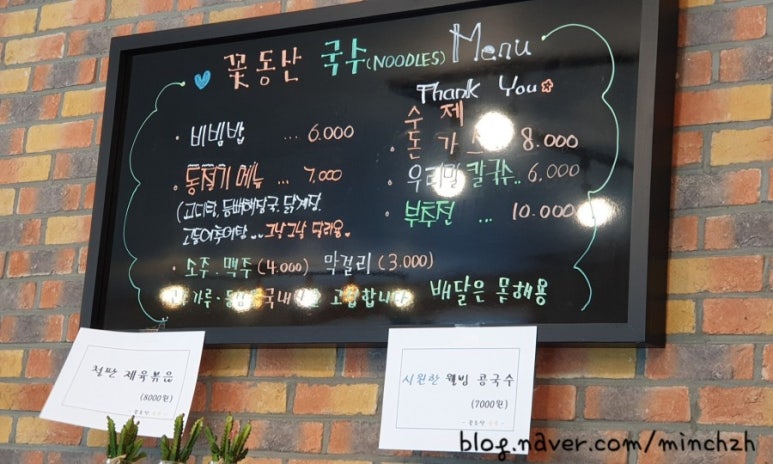 꽃동산 국수(NOODLES) Menu
Thank You
비빔밥 ... 6.000
동절기 메뉴 ... 7,000
(고디탕, 등뼈해장국, 닭계장,
고등어추어탕 ... 그날그날 달라용
소주.맥주 (4.000) 막걸리 (3.000)
수제
돈가스.. 8.000
우리밀 칼국수.. 6,000
부추전 ... 10.000
가루. 국내 고집합니다 배달은 못해용
철판 제육볶음
(8000원)
시원한 웰빙 콩국수
(7000원)
blog.naver.com/minchzh